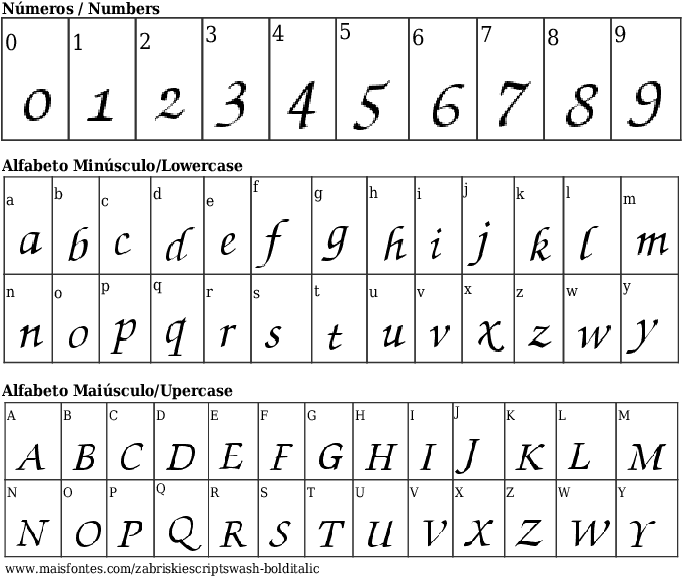 Números / Numbers
0 1 2 3 4 5 6 7 8 9
0 1 2 3 4 5 6 7 8 9
Alfabeto Minúsculo/Lowercase
a b c d e f g h i j k l m
a b c d e f g h i j k l m
n o p q r s t u v x z w y
n o p q r s t u v x z w y
Alfabeto Maiúsculo/Upercase
A B C D E F G H I J K L M
A B C D E F G H I J K L M
N O P Q R S T U V X Z W Y
N O P Q R S T U V X Z W Y
www.maisfontes.com/zabriskiescriptswash-bolditalic